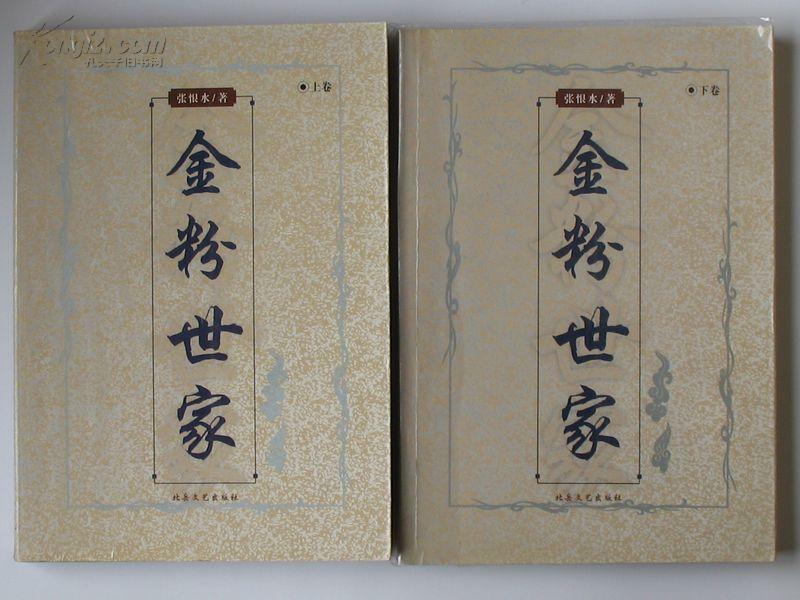 Kongfz.com
孔夫子旧书网
上卷
张恨水/著
金粉世家
北岳文艺出版社
下卷
张恨水/著
金粉世家
北岳文艺出版社